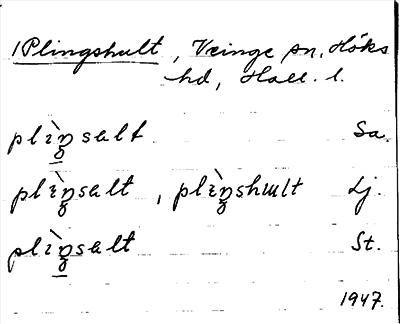 1 Plingshult, Veinge sn, Höks
hd, Hall. l.
plìŋsalt Sa.
plìŋsalt, plìŋshɯlt Lj.
plìŋsalt St.
1947.